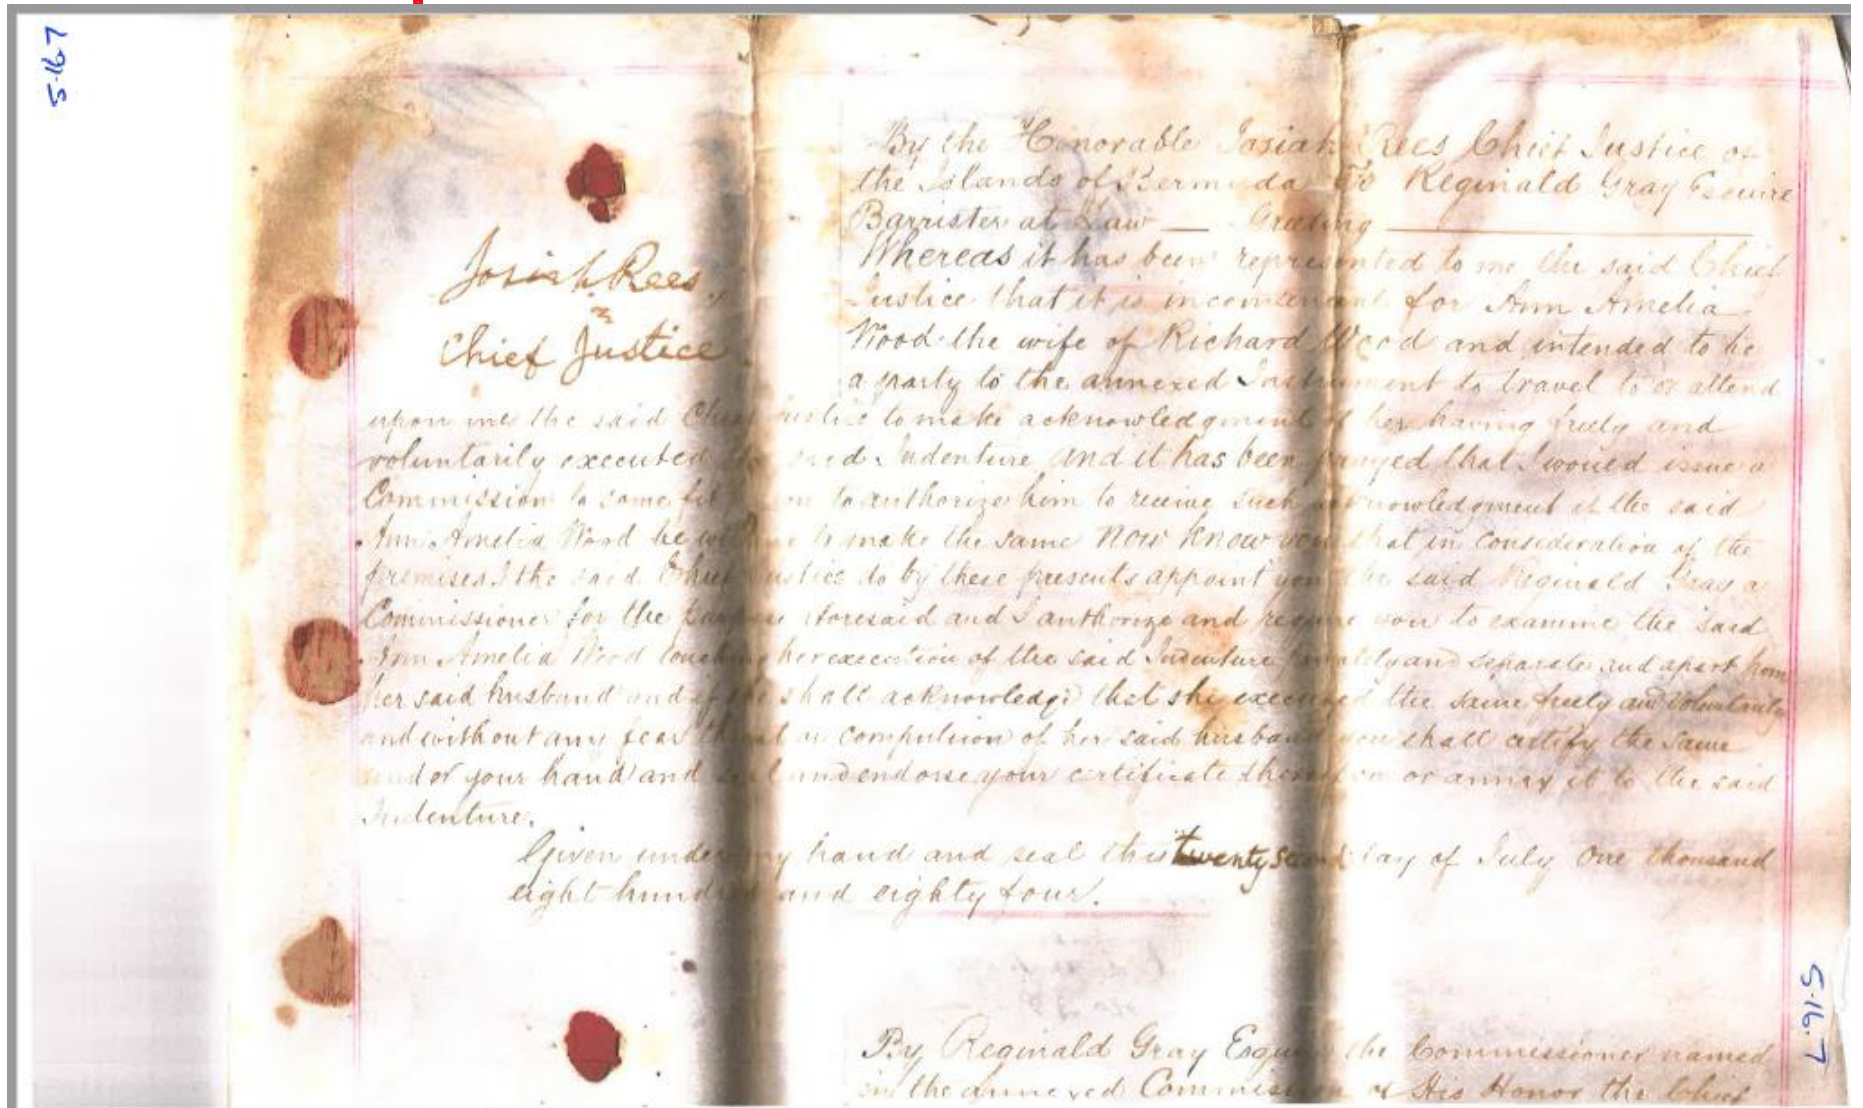 5-16-7
By the Honorable Josiah Rees Chief Justice of
the Islands of Bermuda To Reginald Gray Esquire
Barrister at Law — Greeting —
Josiah Rees
Chief Justice
Whereas it has been represented to me the said Chief
Justice that it is inconvenient for Ann Amelia
Wood the wife of Richard Wood and intended to be
a party to the annexed Instrument to travel to or attend
upon me the said Chief Justice to make acknowledgment of her having freely and
voluntarily executed the said Indenture and it has been prayed that I would issue a
Commission to some fit person to authorize him to receive such acknowledgment if the said
Ann Amelia Wood be willing to make the same Now Know you that in consideration of the
premises I the said Chief Justice do by these presents appoint you the said Reginald Gray a
Commissioner for the purpose aforesaid and I authorize and require you to examine the said
Ann Amelia Wood touching her execution of the said Indenture privately and separate and apart from
her said husband and if she shall acknowledge that she executed the same freely and voluntarily
and without any fear threat or compulsion of her said husband you shall certify the same
under your hand and seal and endorse your certificate thereon or annex it to the said
Indenture.
Given under my hand and seal this twenty second day of July One thousand
eight hundred and eighty four.
By Reginald Gray Esquire the Commissioner named
in the annexed Commission of His Honor the Chief
5-16-7